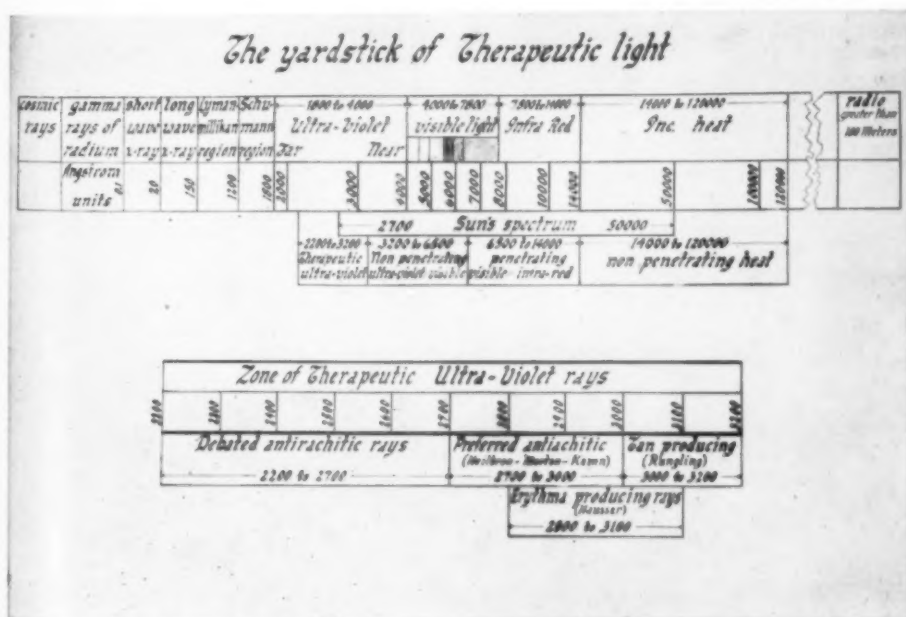 The yardstick of Therapeutic light
cosmic rays
gamma rays of radium
short wave x-ray
long wave x-ray
Lyman millikan region
Schumann region
1800 to 4000
Ultra-Violet
Far Near
4000 to 7800
visible light
7800 to 14000
Infra Red
14000 to 120000
Inc. heat
radio
greater than
100 Meters
Angstrom units
20 150 1200 1800 2000 3000 4000 5000 6000 7000 8000 10000 14000 50000 120000
2700 Sun's spectrum 50000
2200 to 3200
Therapeutic
ultra-violet
3200 to 6500
Non penetrating
ultra-violet visible
6500 to 14000
penetrating
visible infra-red
14000 to 120000
non penetrating heat
Zone of Therapeutic Ultra-Violet rays
2400 2500 2600 2700 3000 3100 3200
Debated antirachitic rays
2200 to 2700
Preferred antiachitic
2700 to 3000
Tan producing
3000 to 3200
Erythma producing rays
(Hausser)
2800 to 3100